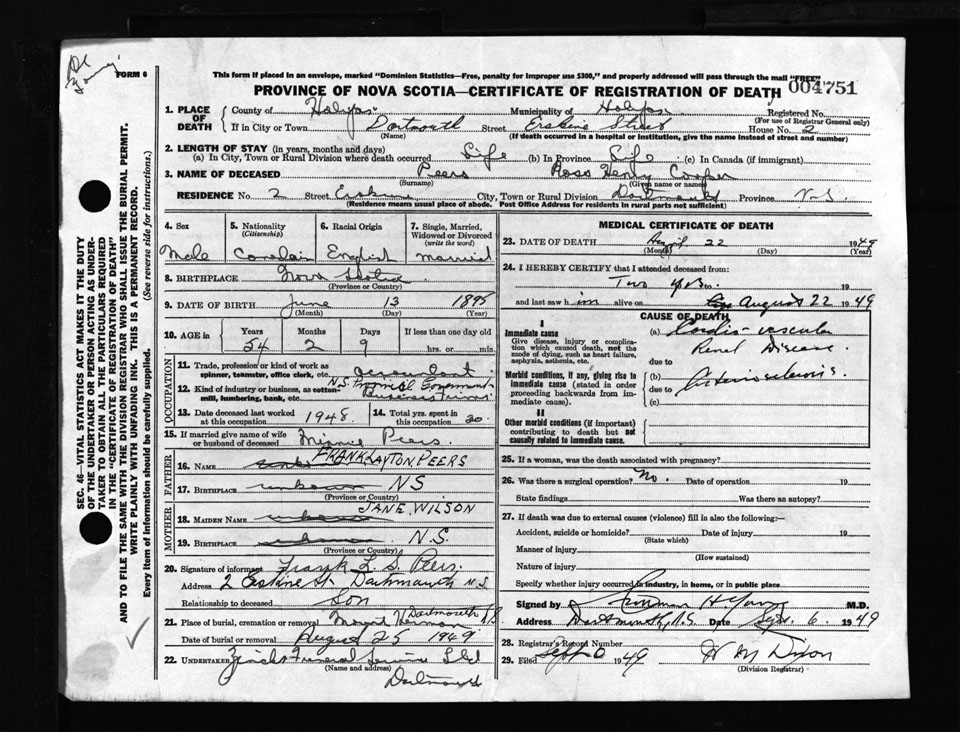 FORM 6
This form if placed in an envelope, marked "Dominion Statistics—Free, penalty for improper use $300," and properly addressed will pass through the mail "FREE"
PROVINCE OF NOVA SCOTIA—CERTIFICATE OF REGISTRATION OF DEATH
004751
SEC. 46—VITAL STATISTICS ACT MAKES IT THE DUTY
OF THE UNDERTAKER OR PERSON ACTING AS UNDER-
TAKER TO OBTAIN ALL THE PARTICULARS REQUIRED
IN THE "CERTIFICATE OF REGISTRATION OF DEATH"
AND TO FILE THE SAME WITH THE DIVISION REGISTRAR WHO SHALL ISSUE THE BURIAL PERMIT.
WRITE PLAINLY WITH UNFADING INK. THIS IS A PERMANENT RECORD.
Every item of Information should be carefully supplied. (See reverse side for instructions.)
1. PLACE OF DEATH
County of Halifax Municipality of Halifax Registered No.
(For use of Registrar General only)
If in City or Town Dartmouth Street Erskine Street House No. 2
(Name) (If death occurred in a hospital or institution, give the name instead of street and number)
2. LENGTH OF STAY (in years, months and days)
(a) In City, Town or Rural Division where death occurred Life (b) In Province Life (c) In Canada (if immigrant)
3. NAME OF DECEASED Peers Ross Henry Cooper
(Surname) (Given name or names)
RESIDENCE No. 2 Street Erskine City, Town or Rural Division Dartmouth Province N.S.
(Residence means usual place of abode. Post Office Address for residents in rural parts not sufficient)
4. Sex 5. Nationality (Citizenship) 6. Racial Origin 7. Single, Married, Widowed or Divorced (write the word)
Male Canadain English Married
8. BIRTHPLACE Nova Scotia
(Province or Country)
9. DATE OF BIRTH June 13 1895
(Month) (Day) (Year)
10. AGE in Years Months Days If less than one day old
54 2 9 hrs. or min.
OCCUPATION
11. Trade, profession or kind of work as
spinner, teamster, office clerk, etc. Accountant
12. Kind of industry or business, as cotton-
mill, lumbering, bank, etc. N.S. Government
13. Date deceased last worked
at this occupation 1948
14. Total yrs. spent in
this occupation 30
15. If married give name of wife
or husband of deceased Minnie Peers.
FATHER
16. NAME FRANK LAYTON PEERS
17. BIRTHPLACE unknown NS
(Province or Country)
MOTHER
18. MAIDEN NAME JANE WILSON
19. BIRTHPLACE N.S.
(Province or Country)
20. Signature of informant Frank L. S. Peers.
Address 2 Erskine St Dartmouth N.S
Relationship to deceased Son
21. Place of burial, cremation or removal Mount Hermon Dartmouth N.S
Date of burial or removal August 25 1949
22. UNDERTAKER Zinck's Funeral Service Ltd
(Name and address)
Dartmouth
MEDICAL CERTIFICATE OF DEATH
23. DATE OF DEATH 22 1949
(Month) (Day) (Year)
24. I HEREBY CERTIFY that I attended deceased from:
Two yrs to 19
and last saw him alive on August 22 1949
CAUSE OF DEATH
I
Immediate cause
Give disease, injury or complica-
tion which caused death, not the
mode of dying, such as heart failure,
asphyxia, asthenia, etc.
(a) Cardio-vascular
Renal Disease
due to
Morbid conditions, if any, giving rise to
immediate cause (stated in order
proceeding backwards from im-
mediate cause).
(b) Arteriosclerosis.
due to
(c)
II
Other morbid conditions (if important)
contributing to death but not
causally related to immediate cause.
25. If a woman, was the death associated with pregnancy?
26. Was there a surgical operation? No. Date of operation 19
State findings Was there an autopsy?
27. If death was due to external causes (violence) fill in also the following:—
Accident, suicide or homicide? Date of injury 19
(State which)
Manner of injury
(How sustained)
Nature of injury
Specify whether injury occurred in industry, in home, or in public place
Signed by H. Young M.D.
Address Dartmouth, N.S. Date Sept. 6 1949
28. Registrar's Record Number
29. Filed Sept 6 1949 Dixon
(Division Registrar)